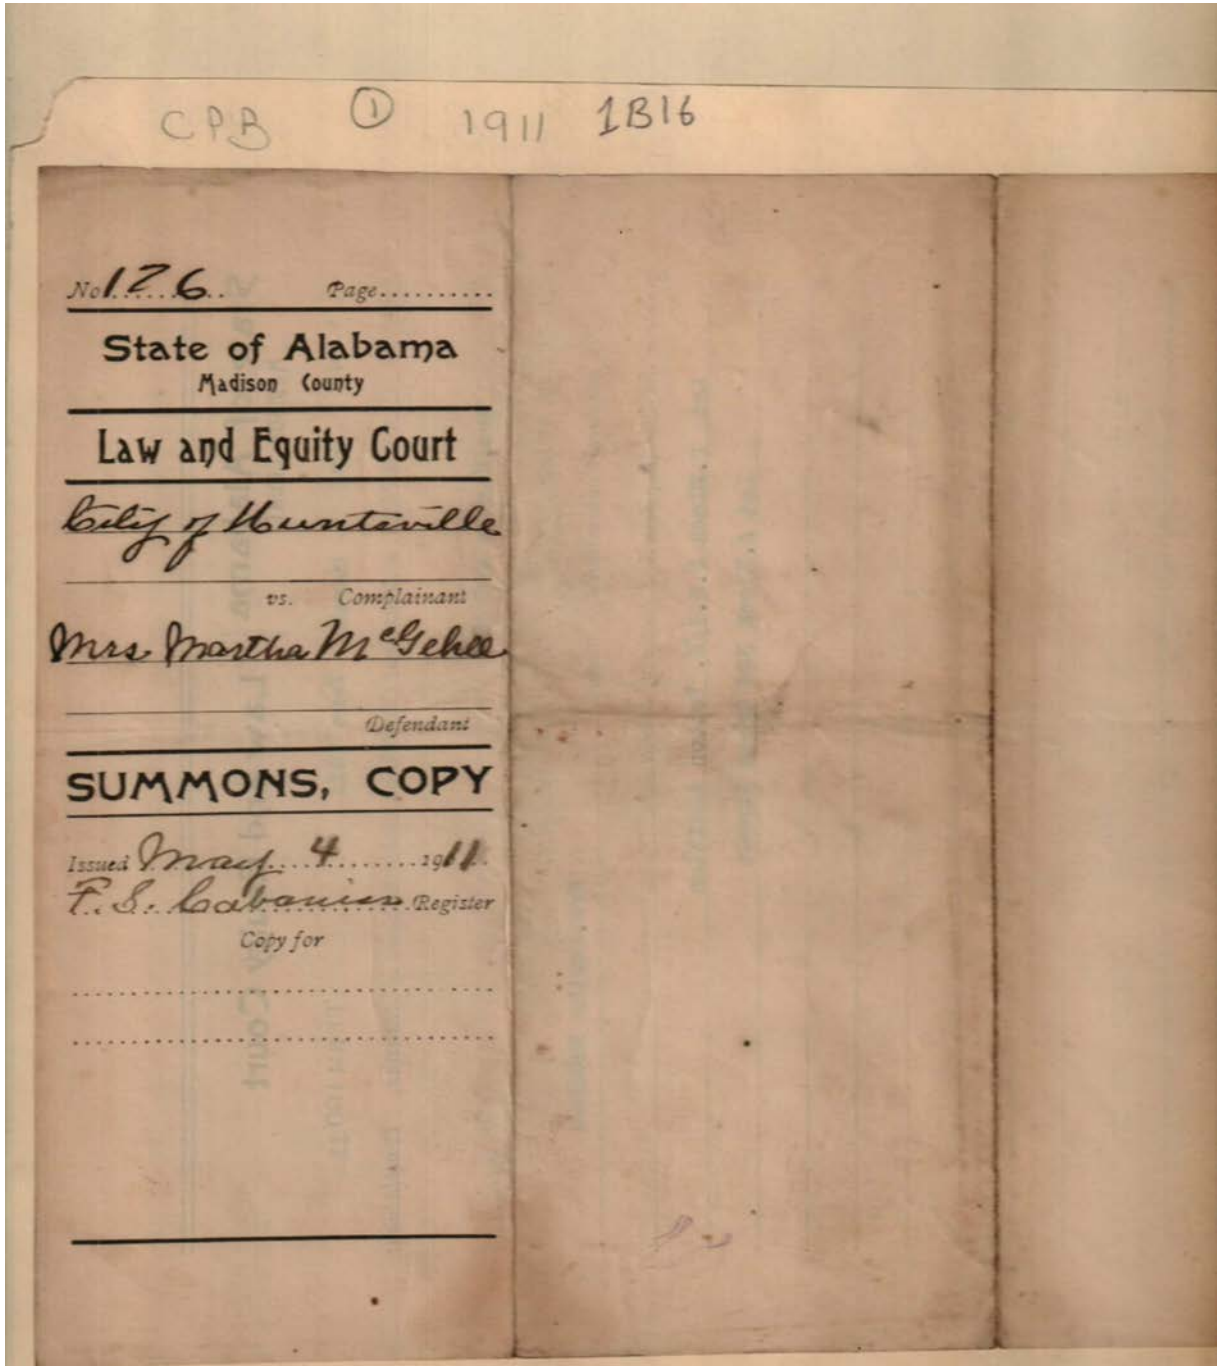 CPB ① 1911 1B16
No. 126 Page..........
State of Alabama
Madison County
Law and Equity Court
City of Huntsville
vs. Complainant
Mrs. Martha McGehee
Defendant
SUMMONS, COPY
Issued May 4 1911
F. S. Cabaniss Register
Copy for